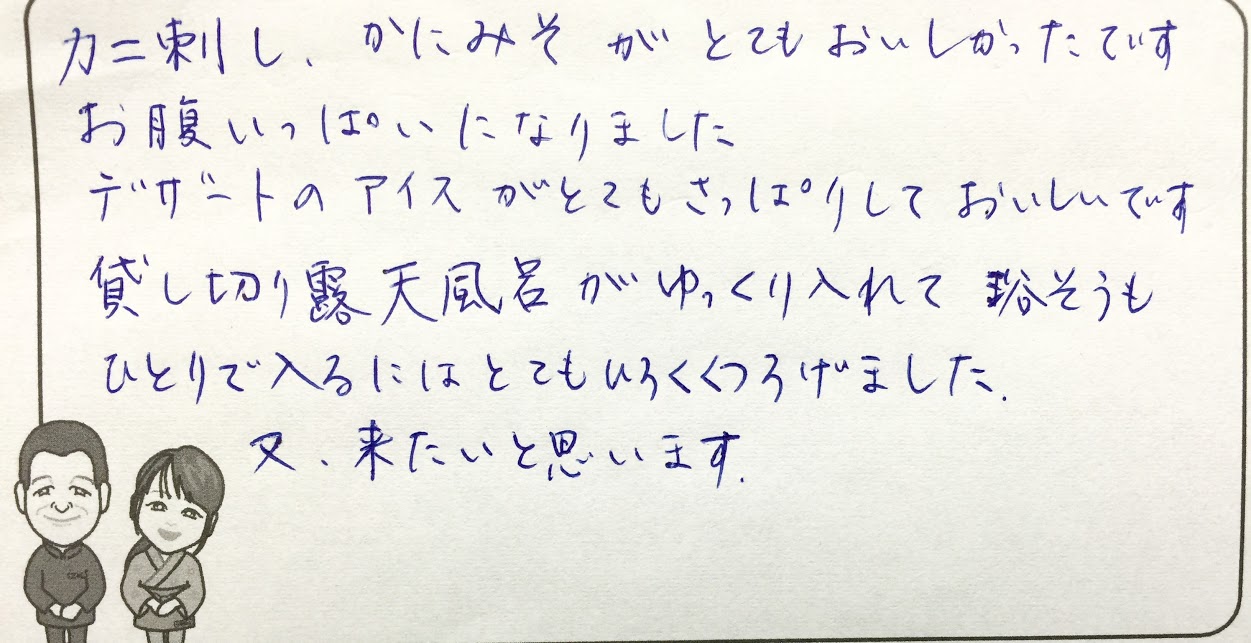 カニ刺し、かにみそ がとてもおいしかったです
お腹いっぱいになりました
デザートの アイス がとてもさっぱりして おいしいです
貸し切り露天風呂がゆっくり入れて 浴そうも
ひとりで入るにはとてもひろくくつろげました.
又、来たいと思います.